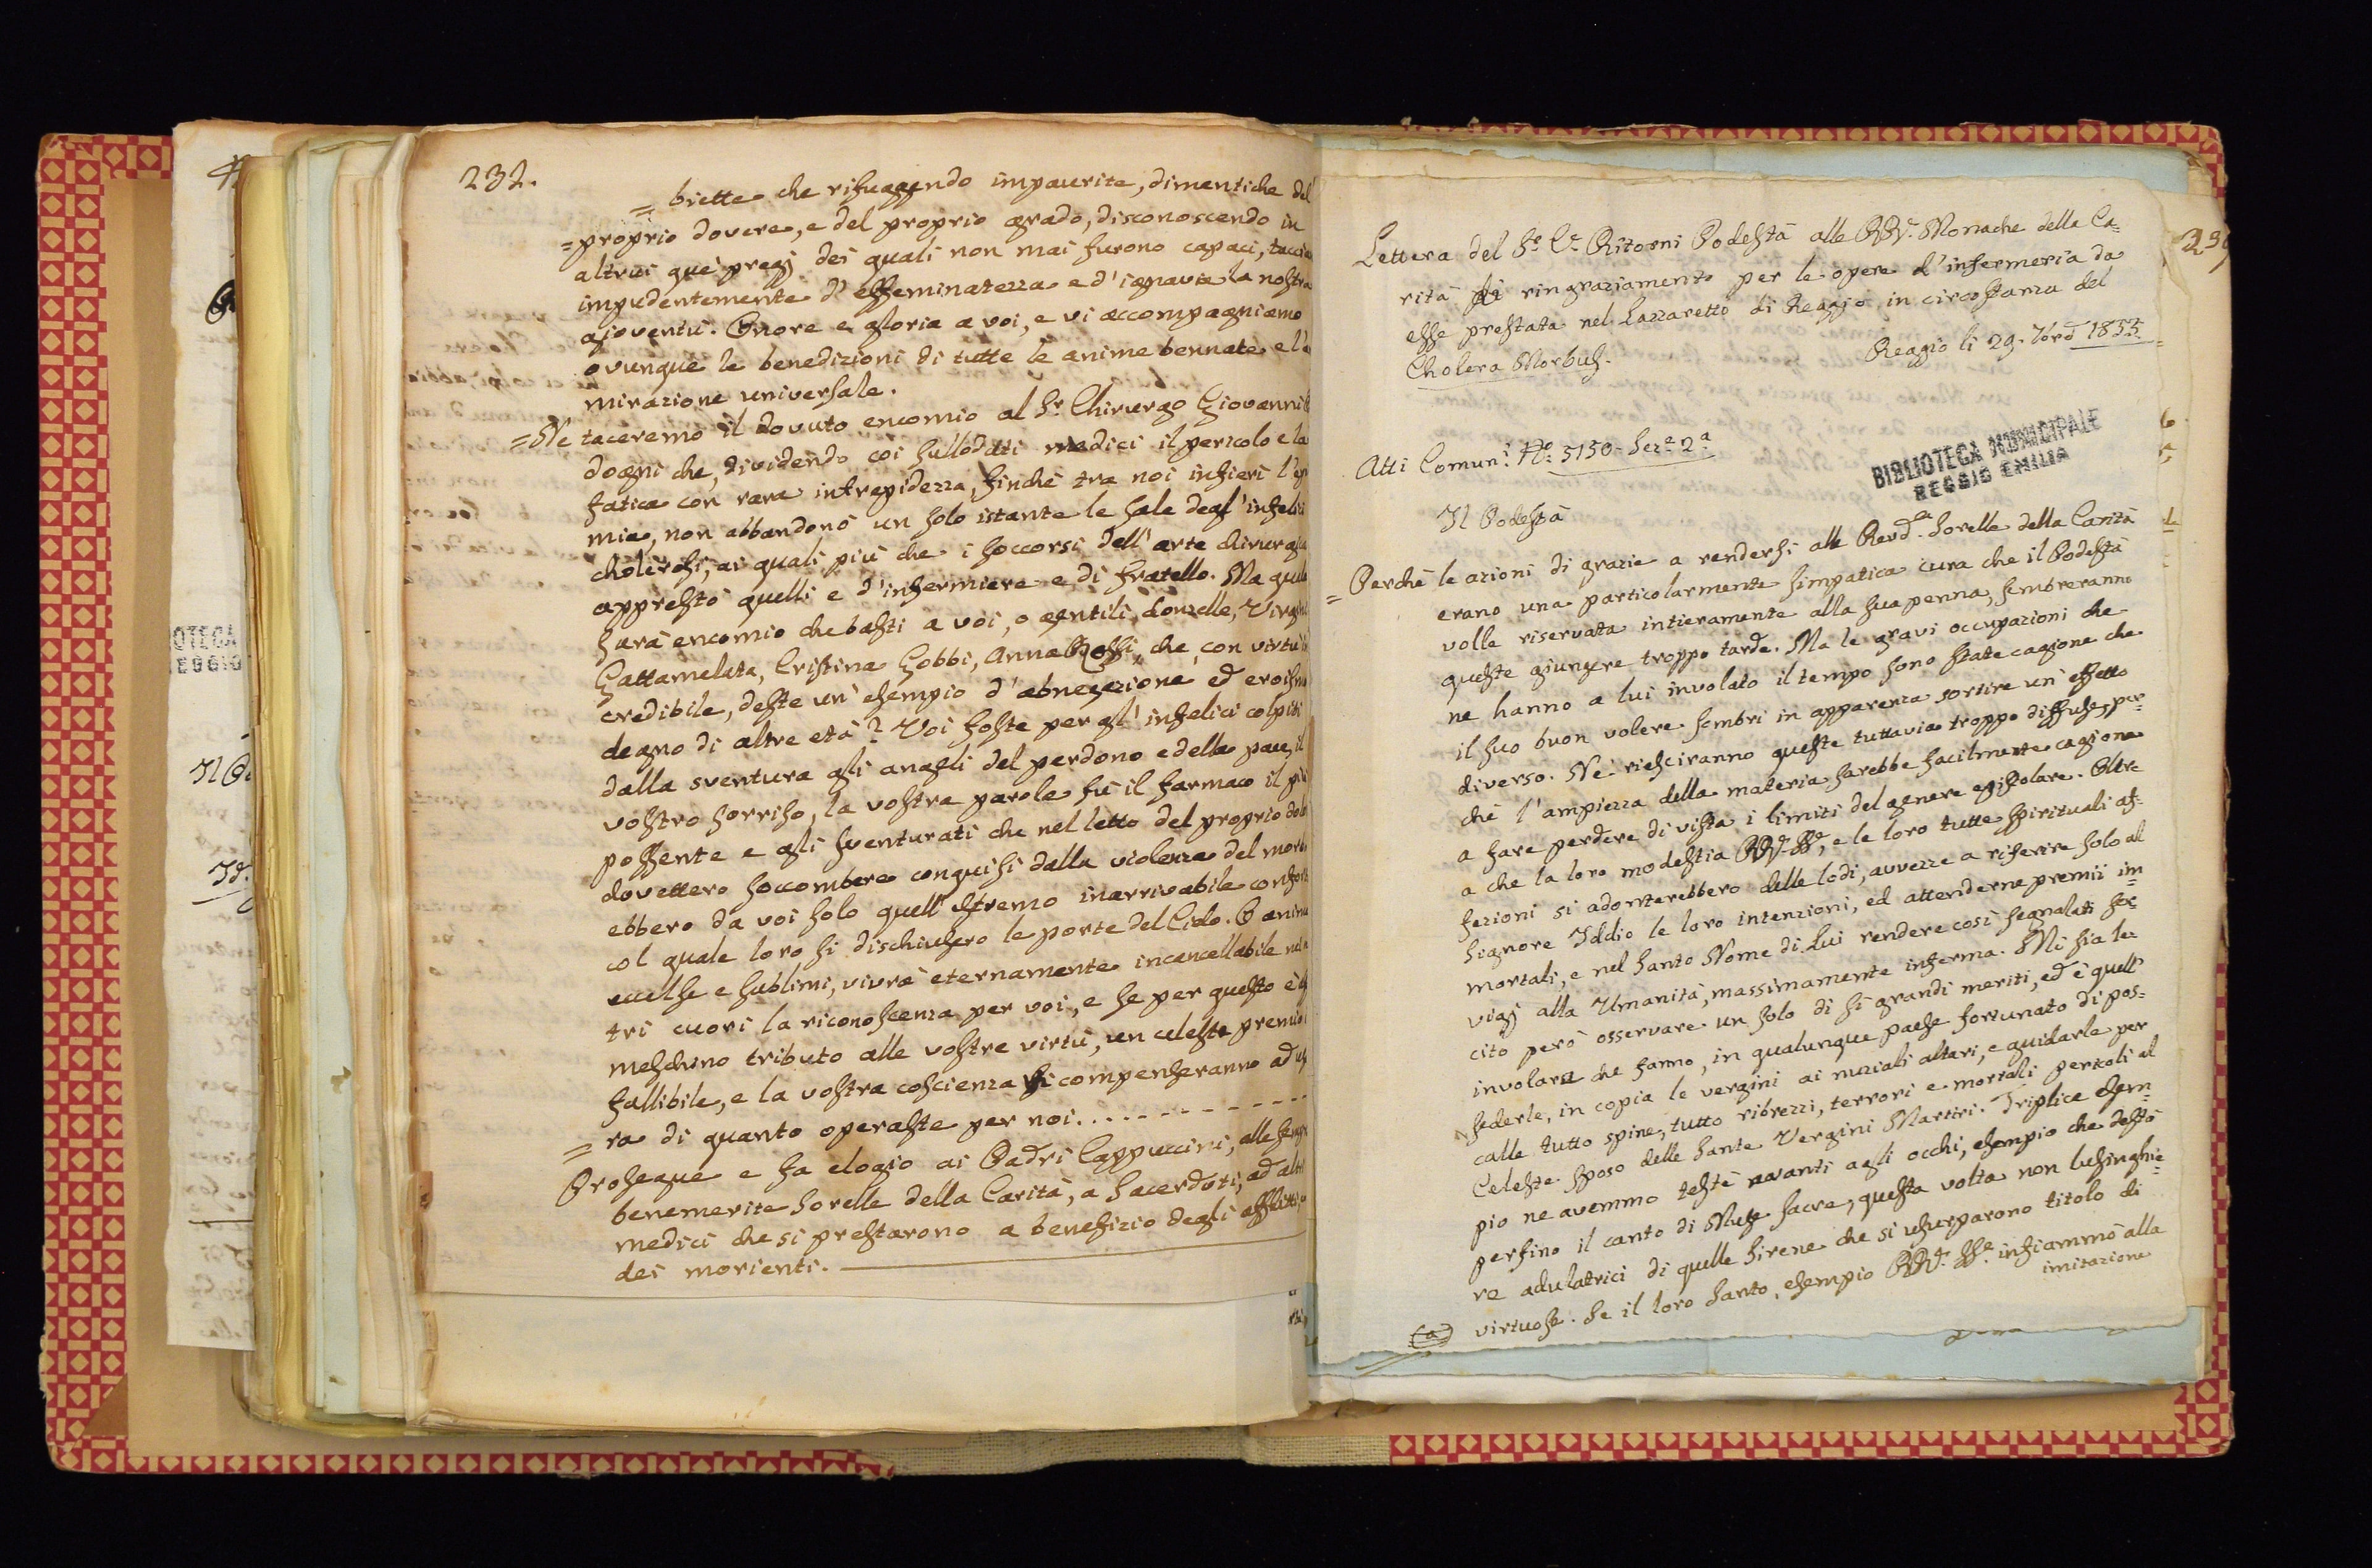 232.
= biette che rifuggendo impaurite, dimentiche del
= proprio dovere, e del proprio grado, disconoscendo in
altrui que' pregj dei quali non mai furono capaci, taccia
impudentemente d'effeminatezza e d'ignavia la nostra
gioventù. Onore e gloria a voi, e vi accompagniamo
ovunque le benedizioni di tutte le anime bennate e l'a
mirazione universale.
= Ne taceremo il dovuto encomio al Sr. Chirurgo Giovanni
dogni che, dividendo coi sullodati medici il pericolo e la
fatica con rara intrepidezza, finchè tra noi infierì l'epi
mia, non abbandonò un solo istante le sale degl'infelici
cholerosi, ai quali più che i soccorsi dell'arte chirurgica
apprestò quelli e d'infermiere e di fratello. Ma quale
sarà encomio che basti a voi, o gentili donzelle, Virginia
Gattamelata, Cristina Gobbi, Anna Rossi, che con virtù in
credibile, deste un'esempio d'abnegazione ed eroismo
degno di altre età? Voi foste per gl'infelici colpiti
dalla sventura gli angeli del perdono e della pace, il
vostro sorriso, la vostra parola fu il farmaco il più
possente e gli sventurati che nel letto del proprio dolo
dovettero soccombere conquisi dalla violenza del morbo
ebbero da voi solo quell'estremo inarrivabile conforto
col quale loro si dischiusero le porte del Cielo. O anime
eccelse e sublimi, vivrà eternamente incancellabile nei
tri cuori la riconoscenza per voi, e se per questo è
meschino tributo alle vostre virtù, un celeste premio
fallibile, e la vostra coscienza vi compenseranno ad us
= ra di quanto operaste per noi. . . . . . . . . . . .
Prosegue e fa elogio ai Padri Cappuccini, alle sempre
benemerite Sorelle della Carità, a Sacerdoti, ad altri
medici che si prestarono a benefizio degli afflitti,
dei morienti.
239
Lettera del Sr. Cr. Ritorni Podestà alle RRde. Monache della Ca=
rità di ringraziamento per le opere d'infermeria da
esse prestata nel Lazzaretto di Reggio in circostanza del
Cholera Morbus.
Reggio li 29. 7bre 1855.
Atti Comuni. No. 5150 - Sez.e 2a.
BIBLIOTECA MUNICIPALE
REGGIO EMILIA
Il Podestà
= Perchè le azioni di grazie a rendersi alle Revd.e Sorelle della Carità
erano una particolarmente simpatica cura che il Podestà
volle riservata intieramente alla sua penna, sembreranno
queste giungere troppo tarde. Ma le gravi occupazioni che
ne hanno a lui involato il tempo sono state cagione che
il suo buon volere sembri in apparenza sortire un'effetto
diverso. Nè riesciranno queste tuttavia troppo diffuse, per=
chè l'ampiezza della materia sarebbe facilmente cagione
a fare perdere di vista i limiti del genere epistolare. Oltre
a che la loro modestia RRde. SSe, e le loro tutte spirituali af=
fezioni si adonterebbero delle lodi, avvezze a riferire solo al
Signore Iddio le loro intenzioni, ed attenderne premii im=
mortali, e nel Santo Nome di Lui rendere così segnalati ser=
vigj alla Umanità, massimamente inferma. Mi sia le=
cito però osservare un solo di sì grandi meriti, ed è quell'
involare che fanno, in qualunque paese fortunato di pos=
sederle, in copia le vergini ai nuziali altari, e guidarle per
calle tutto spine, tutto ribrezzi, terrori e mortali pericoli al
Celeste Sposo delle Sante Vergini Martiri. Triplice esem=
pio ne avemmo testè avanti agli occhi, esempio che destò
perfino il canto di Muse sacre, questa volta non lusinghie=
re adulatrici di quelle Sirene che si usurparono titolo di
(a) virtuose. Se il loro Santo esempio RRde. SSe. infiammò alla
imitazione
OTECA
EGGIO